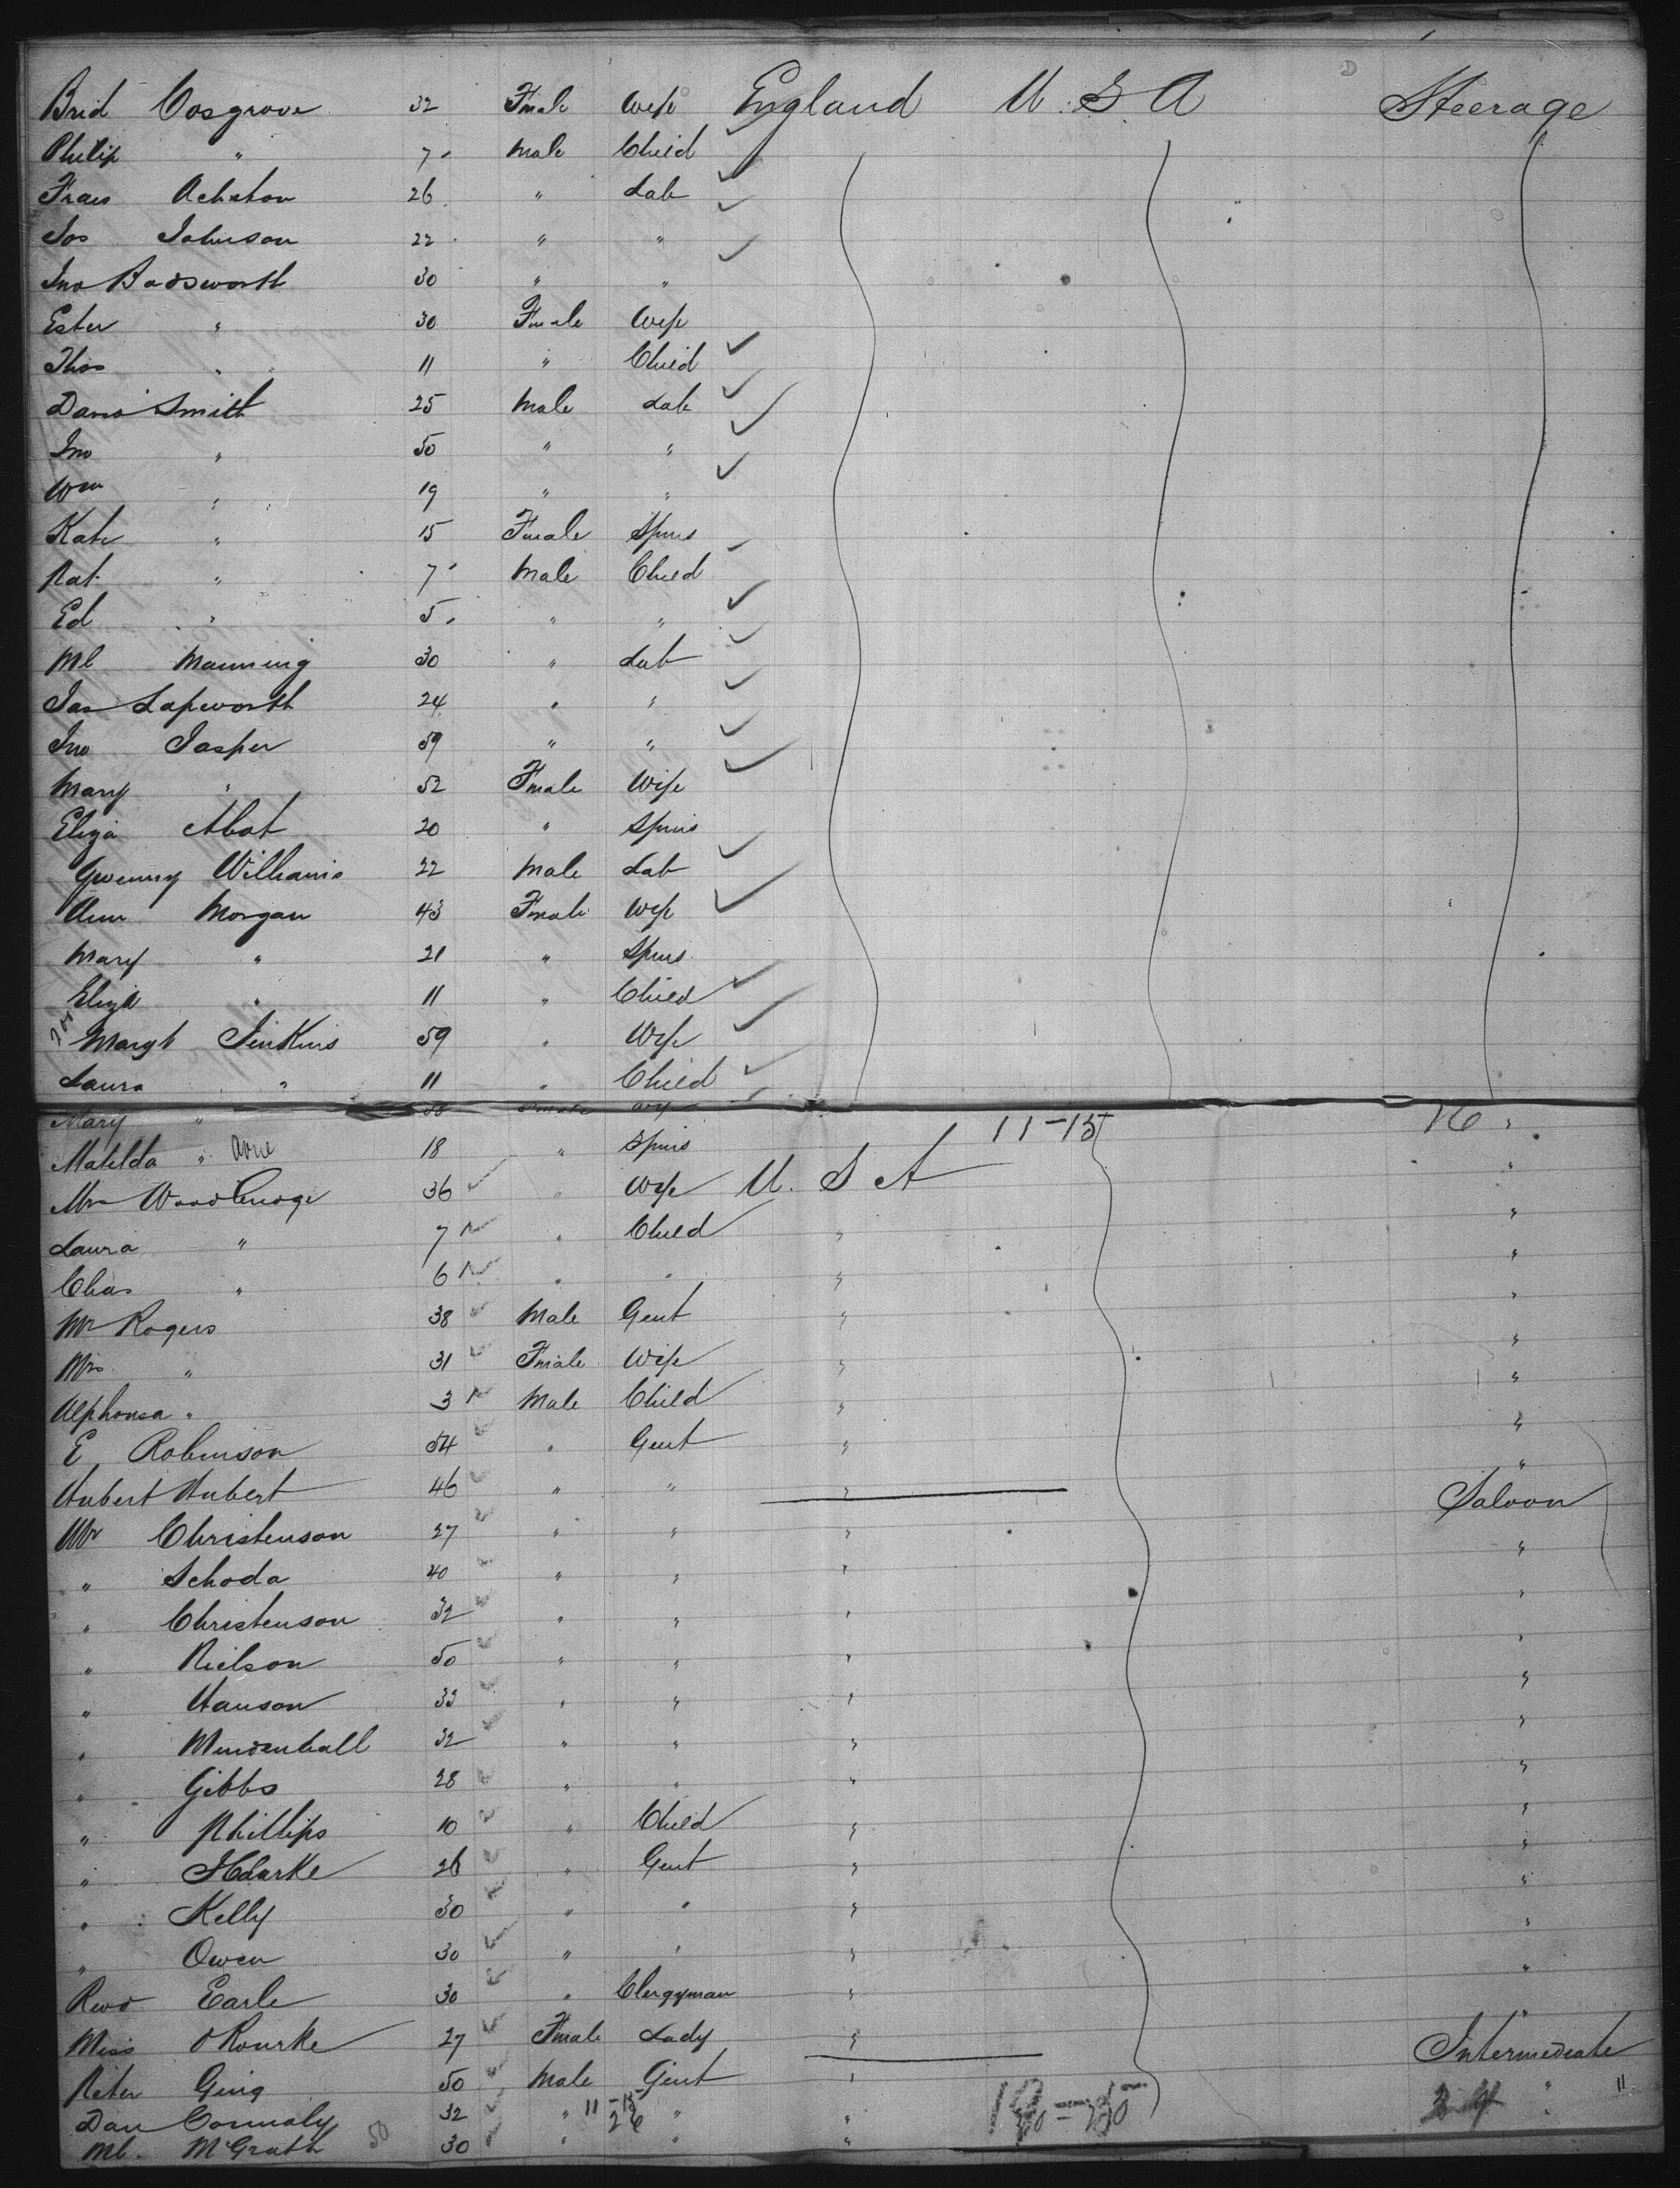 Brid Cosgrove 32 Fmale Wife England U.S.A Steerage
Philip " 7 Male Child
Fras Ackston 26 " Lab
Jos Johnson 22 " "
Jno Badsworth 30 " "
Ester " 30 Fmale Wife
Thos " 11 " Child
David Smith 25 Male Lab
Jno " 50 " "
Wm " 19 " "
Kate " 15 Fmale Spins
Pat " 7 Male Child
Ed " 5 " "
Ml Manning 30 " Lab
Jas Lapworth 24 " "
Jno Jasper 59 " "
Mary " 52 Fmale Wife
Eliza Abot 20 " Spins
Gwenny Williams 22 Male Lab
Ann Morgan 43 Fmale Wife
Mary " 21 " Spins
Eliza " 11 " Child
Margt Jenkins 59 " Wife
Laura " 11 " Child
Mary " 11-15 "
Matilda " 18 " Spins "
Mrs 36 " Wife U.S A "
Laura " 7 " Child " "
Chas " 6 " " " "
Mr Rogers 38 Male Gent " "
Mrs " 31 Fmale Wife " "
Alphonsa " 3 Male Child " "
E Robinson 54 " Gent " "
Hubert Hubert 46 " " " Saloon
Mr Christenson 27 " " " "
" Schoda 40 " " " "
" Christenson 32 " " " "
" Nielson 50 " " " "
" Hanson 33 " " " "
" Mendenhall 32 " " " "
" Gibbs 28 " " " "
" Phillips 10 " Child " "
" Clarke 26 " Gent " "
" Kelly 30 " " " "
" Owen 30 " " " "
Revd Earle 30 " Clergyman " "
Miss O'Rourke 27 Fmale Lady " Intermediate
Peter Ging 50 Male Gent " " 11
Dan Connaly 32 " 11-15 " " "
Ml. McGrath 50 30 " 26 " "